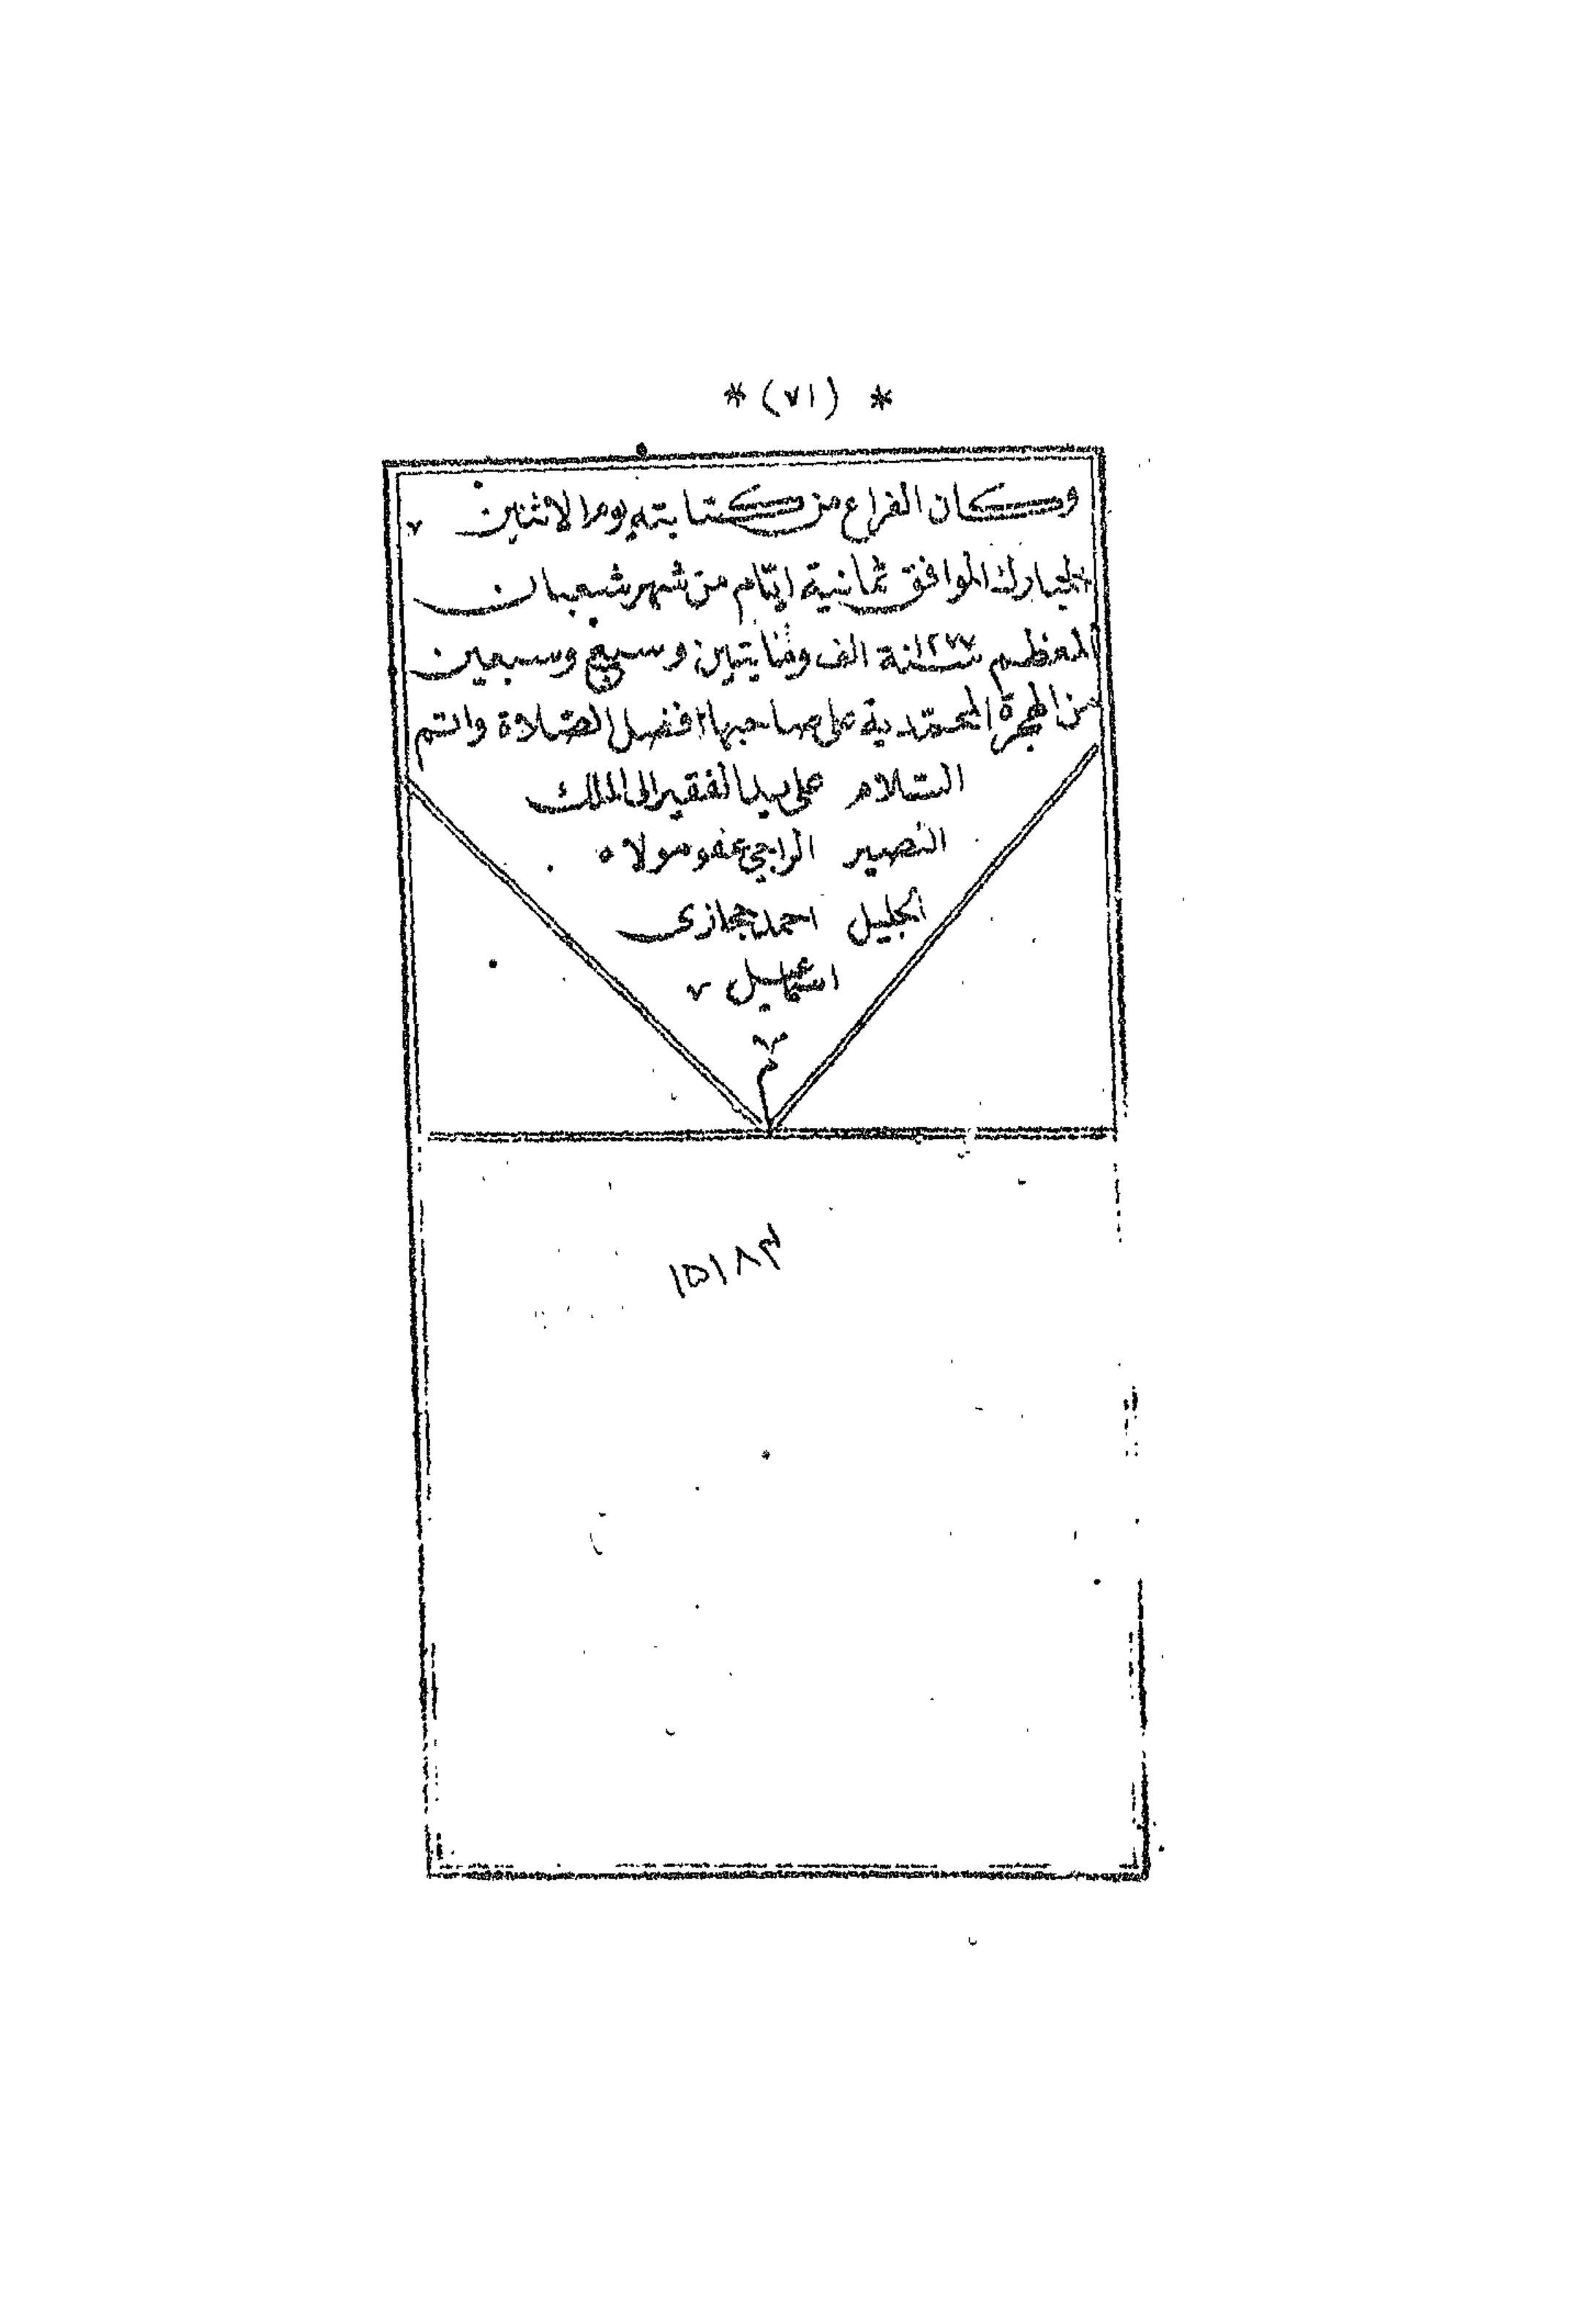 * (٧١) *
وكان الفراغ من كتابته يوم الاثنين
المبارك الموافق ثمانية ايام من شهر شعبان
المعظم سنة ١٢٧٧ الف ومايتين وسبع وسبعين
من الهجرة المحمّدية على صاحبها افضل الصّلاة واتم
السّلام على يد الفقير الى الملك
النصير الراجي عفو مولاه
الجليل احمد حجازى
اسماعيل
تم